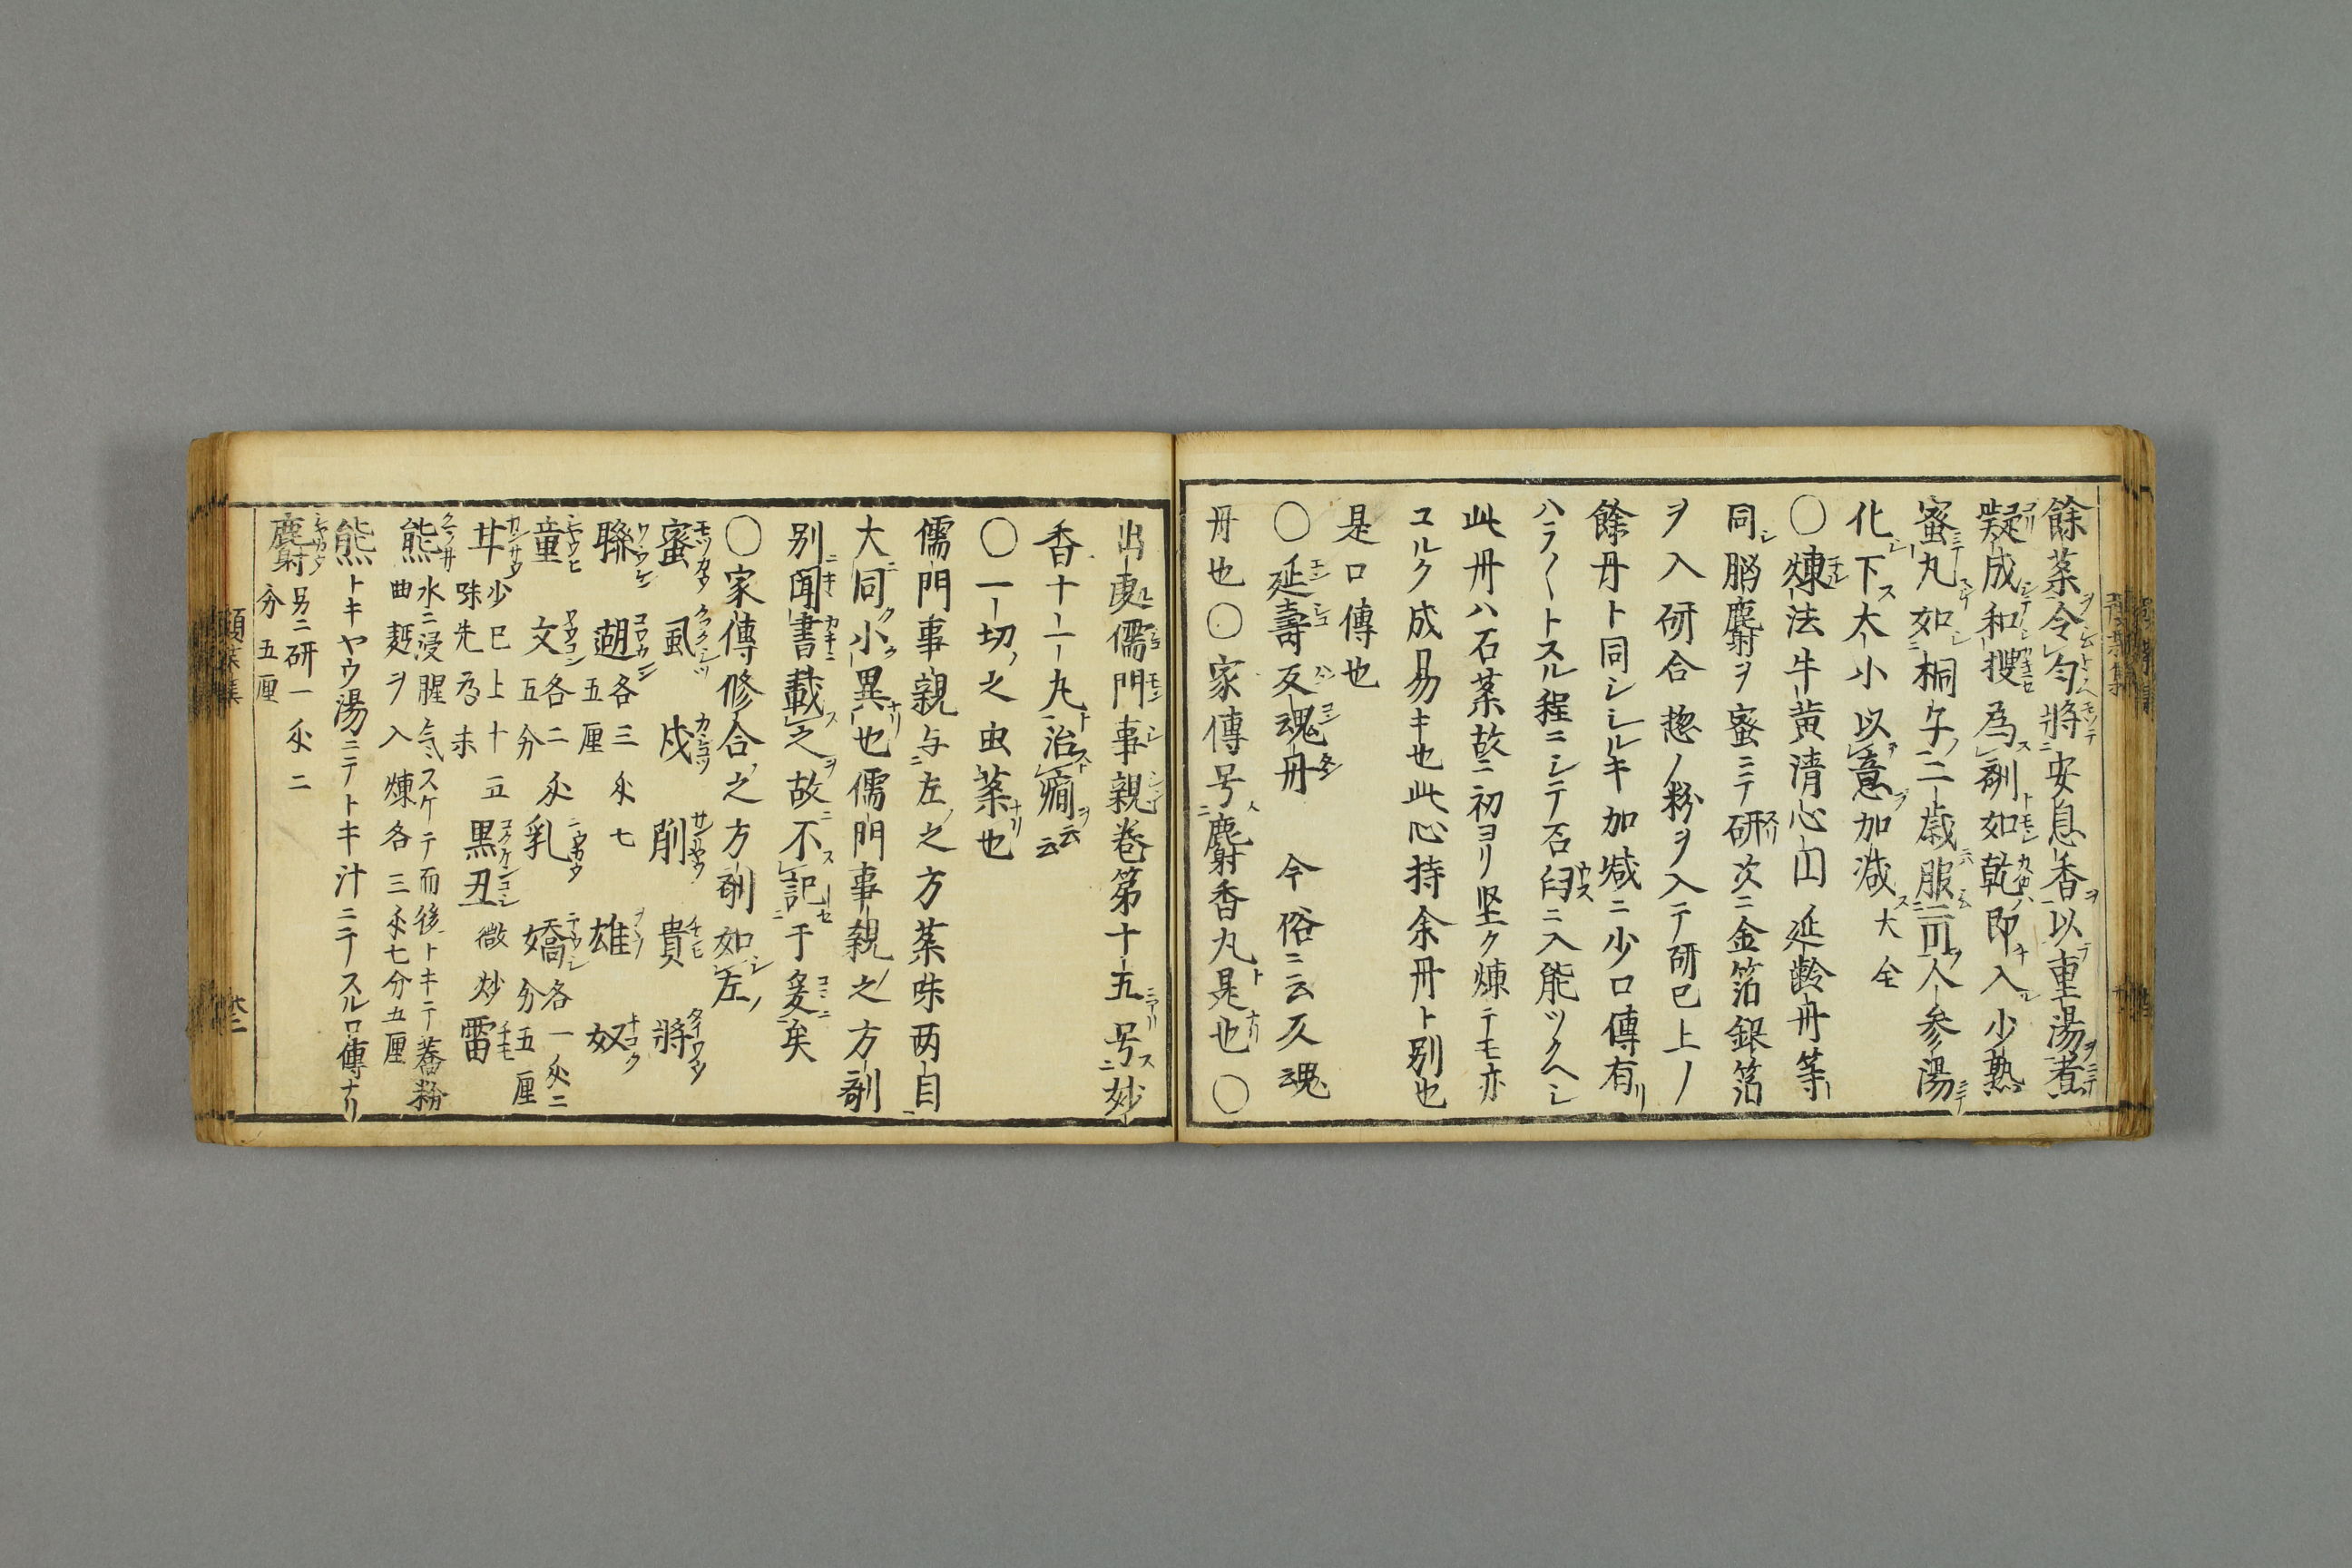 餘薬令匀將安息香以重湯煮
凝成和搜為劑如乾即入少熟
蜜丸如桐子二歳服二人参湯
化下大小以意加減 大全
〇煉法牛黄清心圓延齡丹等
同脳麝ヲ蜜ニテ研次ニ金箔銀箔
ヲ入研合惣ノ粉ヲ入テ研已上ノ
餘丹ト同シシルキ加減ニ少口傳有
ハラ〱トスル程ニシテ石臼ニ入能ツクヘシ
此丹ハ石薬故ニ初ヨリ堅ク煉テモ亦
ユルク成易キ也此心持余丹ト別也
是口傳也
〇延壽反魂丹 今俗ニ云反魂
丹也〇家傳号麝香丸是也〇
出處儒門事親巻第十五号妙
香十一丸治癇云云
〇一切之虫薬也
儒門事親与左之方薬味两目
大同小異也儒門事親之方劑
别聞書載之故不記于爰矣
〇家傳修合之方劑如左
蜜 虱 戍 削 貴 將
聯 遡 各三朱七五厘 雄 奴
童 文 各二朱五分 乳 嬌 各一朱二分五厘
甘 少 巳上十五味先為末 黒丑 微炒 雷
熊 水ニ浸腥気スケテ而後トキテ蕎粉
曲麪ヲ入煉各三朱七分五厘
熊トキヤウ湯ニテトキ汁ニテスル口傳ナリ
麝 另ニ研一朱二分五厘